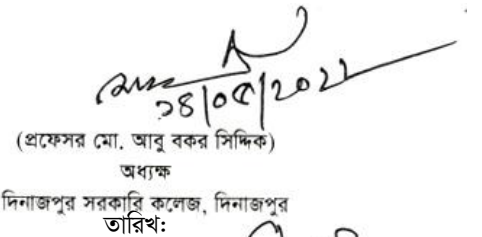 ১৪|০৫|২০২২
(প্রফেসর মো. আবু বকর সিদ্দিক)
অধ্যক্ষ
দিনাজপুর সরকারি কলেজ, দিনাজপুর
তারিখ: